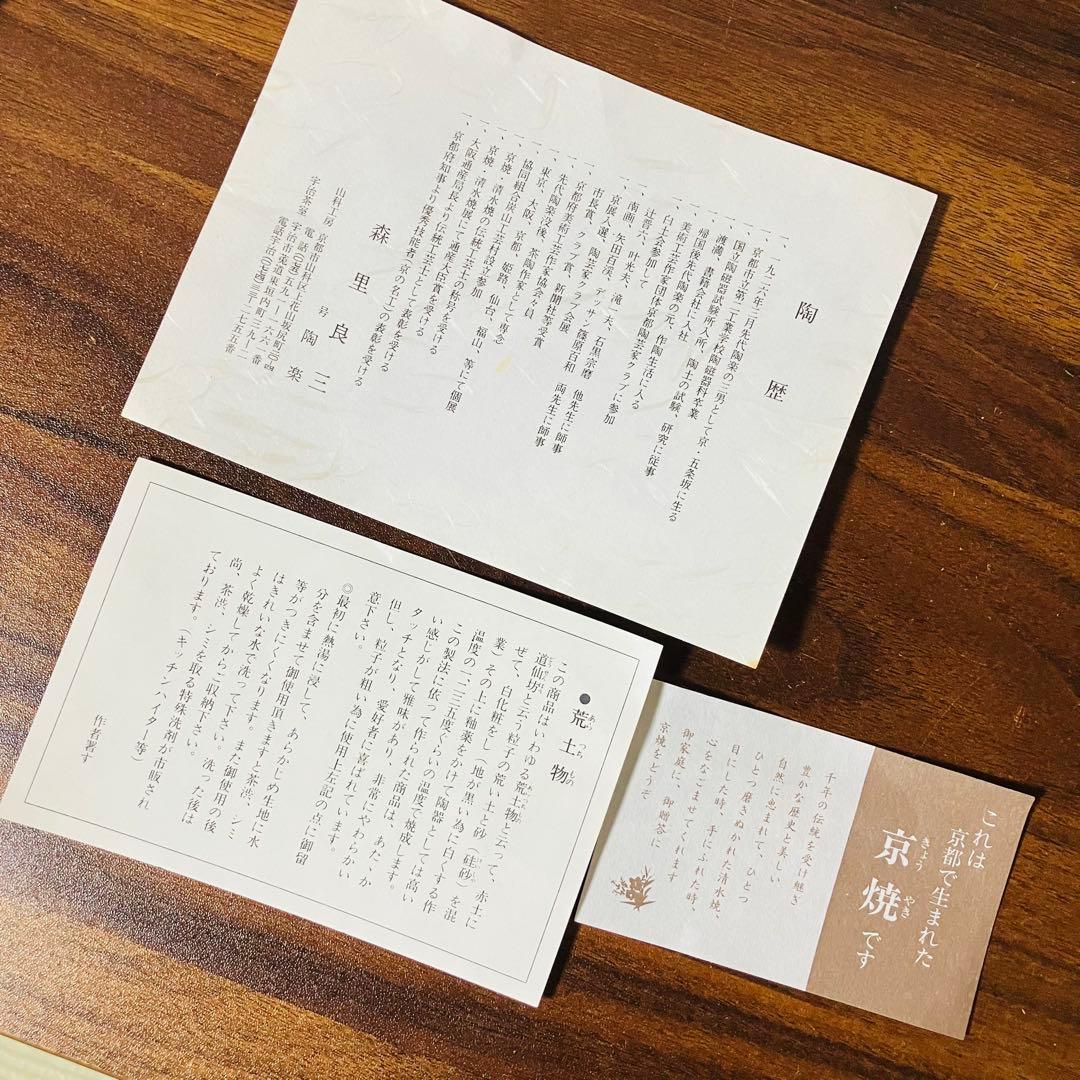 陶歴
一、一九二六年三月先代陶楽の三男として京・五条坂に生る
一、京都市立第二工業学校陶磁器科卒業
一、国立陶磁器試験所入所、陶土の試験、研究に従事
一、渡満、書籍会社に入社
一、帰国後先代陶楽の元、作陶生活に入る
一、美術工芸作家団体京都陶芸家クラブに参加
一、白土会参加して
辻晋六、叶光夫、滝一夫、石黒宗麿 他先生に師事
一、南画 矢田百渓、デッサン 篠原百和 両先生に師事
一、京展入選、陶芸家クラブ会展
市長賞、クラブ賞、新聞社等受賞
一、京都府美術工芸作家協会々員
一、先代陶楽没後、茶陶作家として専念
一、東京、大阪、京都、姫路、仙台、福山、等にて個展
協同組合炭山工芸村設立参加
一、京焼・清水焼の伝統工芸士の称号を受ける
一、京焼・清水焼展にて通産大臣賞を受ける
一、大阪通産局長より伝統工芸士として表彰を受ける
一、京都府知事より優秀技能者（京の名工）の表彰を受ける
森里良三
号 陶楽
山科工房 京都市山科区上花山坂尻町一〇-四
電話(〇七五)五九一-一六六一番
宇治茶室 宇治市莵道東垣内町三九-一二
電話宇治(〇七七四)二三-七五五番
●荒土物
あらつちもの
この商品はいわゆる荒土物と云って、赤土に
道仙坊と云う粒子の荒い土と砂（硅砂）を混
ぜて、白化粧をし（地が黒い為に白くする作
業）その上に釉薬をかけて陶器としては高い
温度の一、二三五度ぐらいの温度で焼成します。
この製法に依って作られた商品は、あたゝか
い感じがして雅味があり、非常にやわらかい
タッチとなり、愛好者に喜ばれています。
但し、粒子が粗い為に使用上左記の点に御留
意下さい。
◎最初に熱湯に浸して、あらかじめ生地に水
分を含ませて御使用頂きますと茶渋、シミ
等がつきにくくなります。また御使用の後
はきれいな水で洗って下さい。洗った後は
よく乾燥してからご収納下さい。
尚、茶渋、シミを取る特殊洗剤が市販され
ております。（キッチンハイター等）
作者署す
これは
京都で生まれた
京焼です
きょうやき
千年の伝統を受け継ぎ
豊かな歴史と美しい
自然に恵まれて、ひとつ
ひとつ磨きぬかれた清水焼、
目にした時、手にふれた時、
心をなごませてくれます
御家庭に、御贈答に
京焼をどうぞ